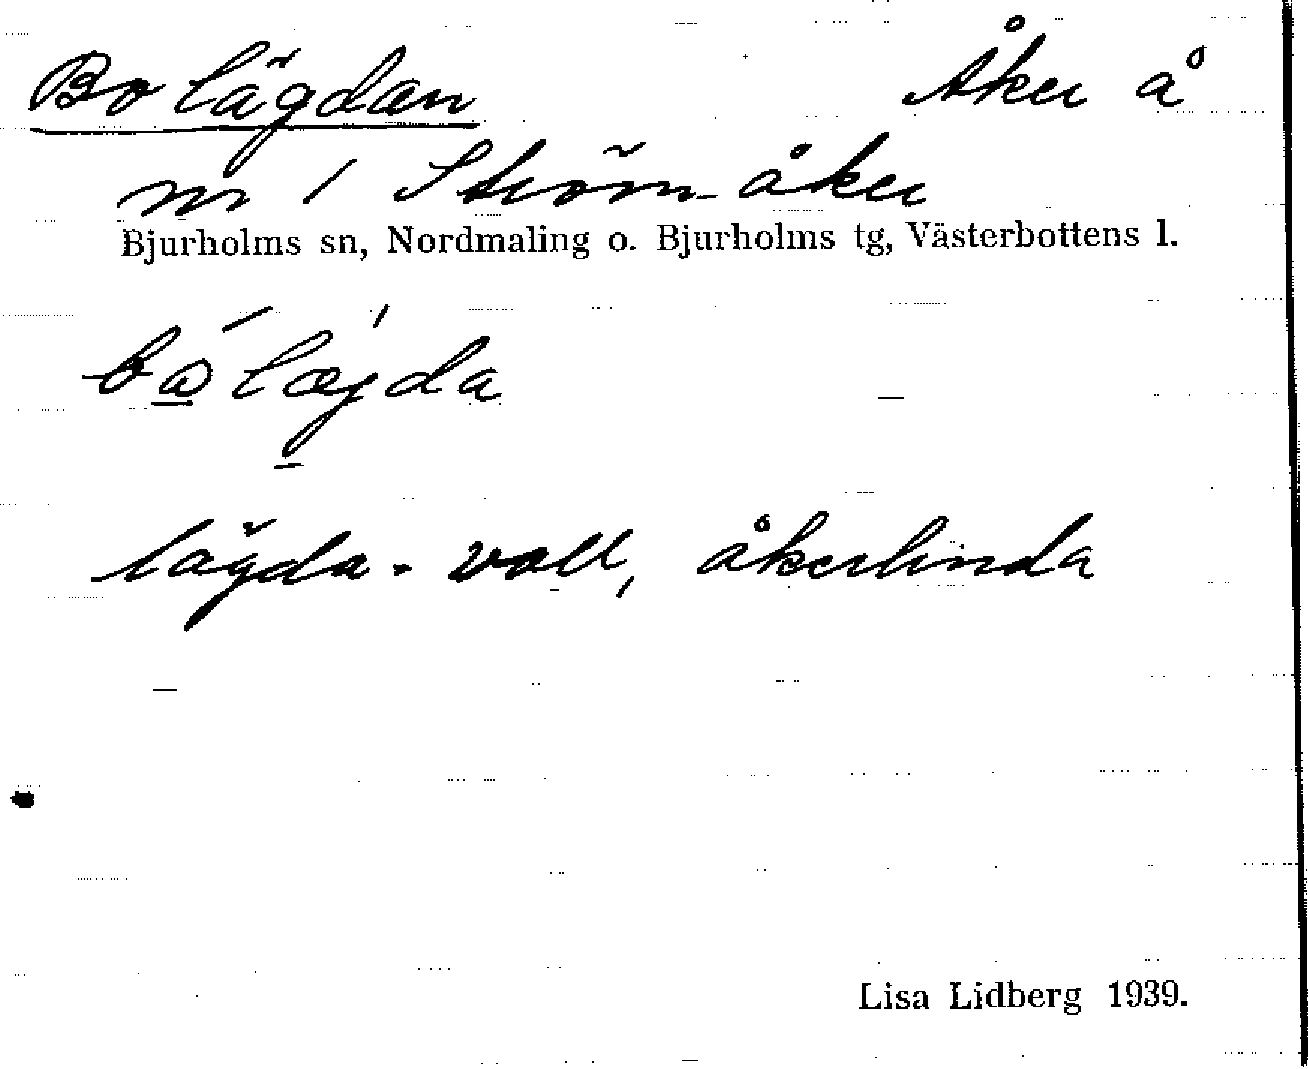 Bolägdan Åker å
nr 1 Strömåker
Bjurholms sn, Nordmaling o. Bjurholms tg, Västerbottens l.
lägda - vall, åkerlinda
Lisa Lidberg 1939.